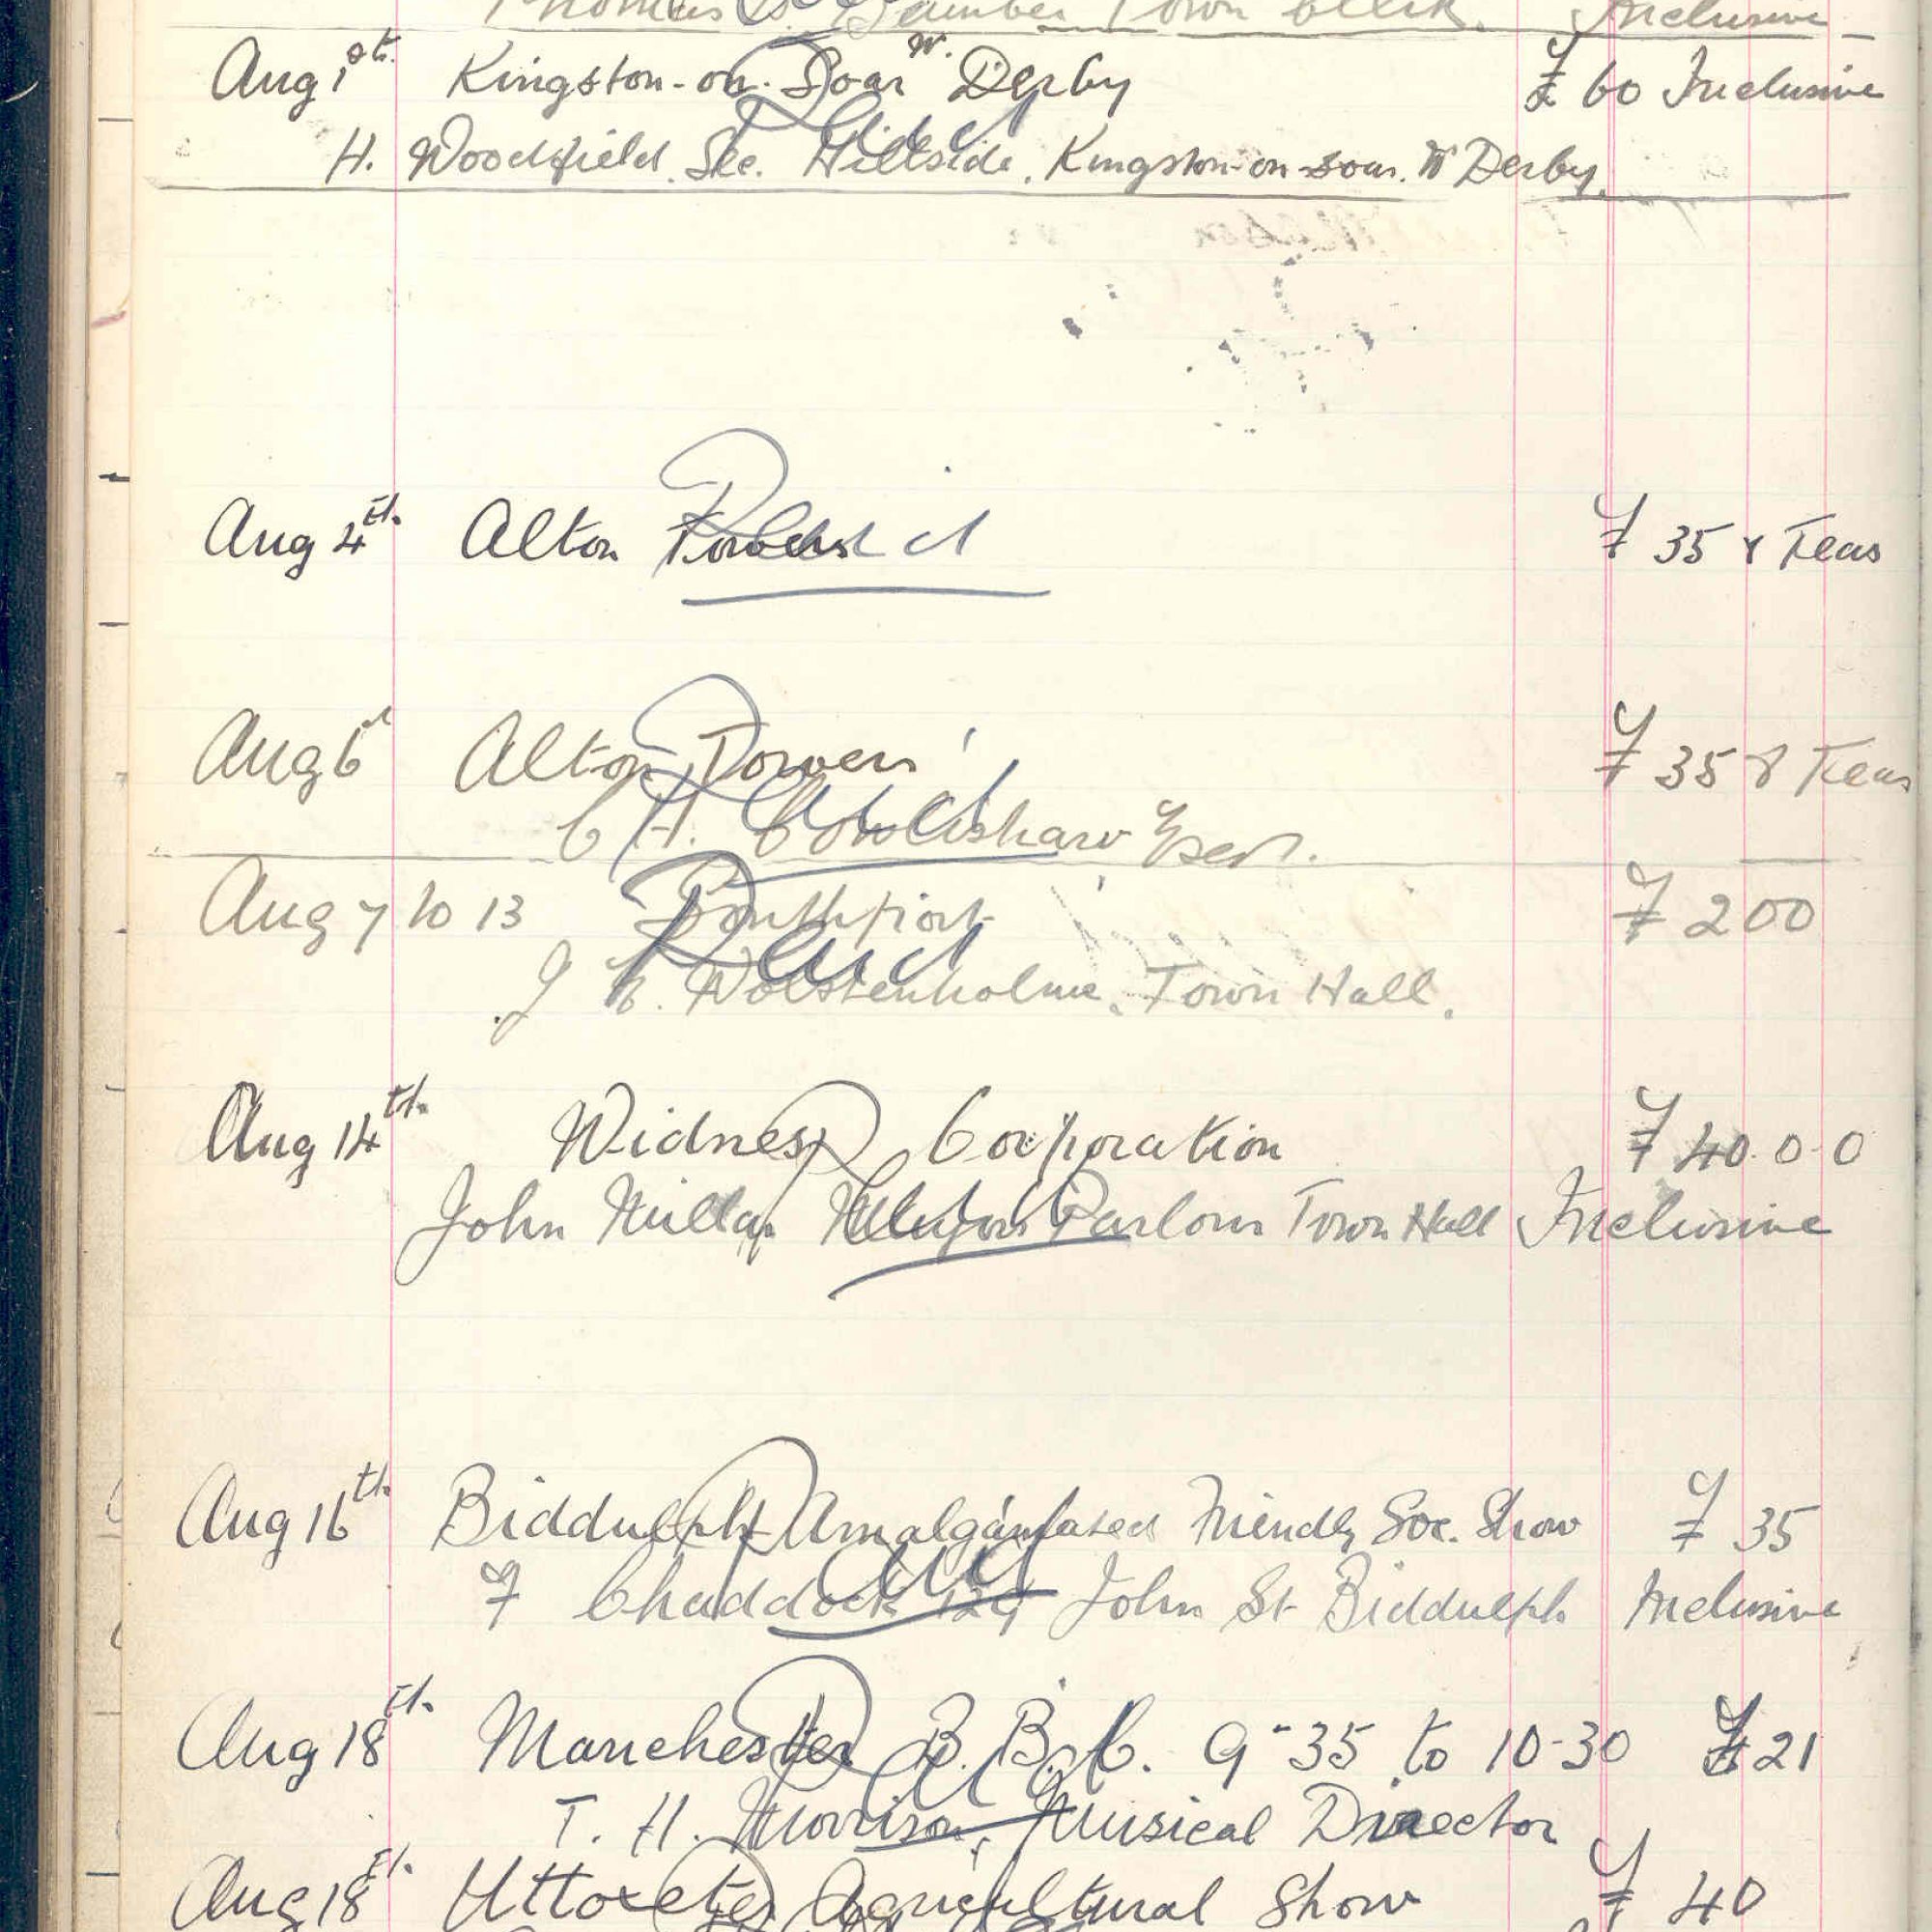 Thomas Town Clerk. Inclusive
Aug 1st. Kingston-on-Soar Nr. Derby £60 Inclusive
Paid
H. Woodfield. Sec. Hillside, Kingston-on-soar. Nr Derby.
Aug 4th. Alton Towers £35 & Teas
Paid
Aug 6th Alton Towers £35 & Teas
Paid
C H. Cowlishaw Esqr.
Aug 7 to 13 Southport £200
Paid
J. Wolstenholme, Town Hall.
Aug 14th. Widnes Corporation £40.0.0
Paid
John Millar Mayors Parlour Town Hall Inclusive
Aug 16th. Biddulph Amalgamated Friendly Soc. Show £35
Paid
F Chaddock 129 John St Biddulph Inclusive
Aug 18th. Manchester B.B.C. 9-35 to 10-30 £21
Paid
T. H. Morrison, Musical Director
Aug 18th. Uttoxeter Agricultural Show £40